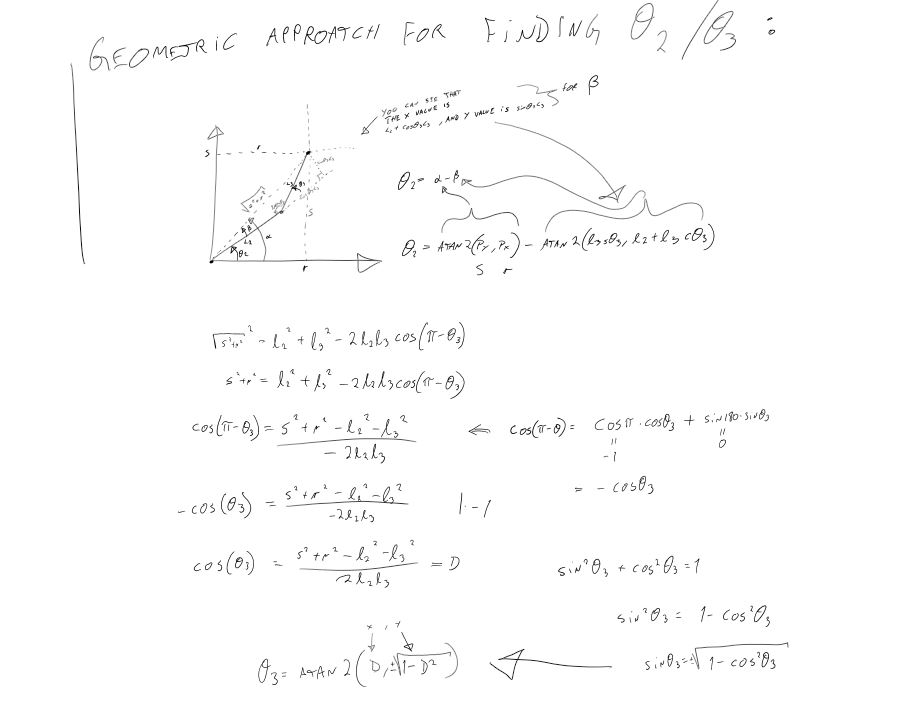 GEOMETRIC APPROATCH FOR FINDING θ₂/θ₃ :
YOU CAN SEE THAT
THE X VALUE IS
L₂ + cosθ₃L₃, AND Y VALUE IS sinθ₃L₃
FOR β
S
r
L₃
θ₃
S
α
β
L₂
θ₂
r
θ₂ = α - β
θ₂ = ATAN2(Py, Px) - ATAN2(l₃sθ₃, l₂ + l₃cθ₃)
S r
√s²+r²² = l₂² + l₃² - 2l₂l₃cos(π-θ₃)
s²+r² = l₂² + l₃² - 2l₂l₃cos(π-θ₃)
cos(π-θ₃) = (s² + r² - l₂² - l₃²) / (-2l₂l₃) ⇐ cos(π-θ) = cosπ · cosθ₃ + sin180·sinθ₃
= -1
= 0
= -cosθ₃
-cos(θ₃) = (s² + r² - l₂² - l₃²) / (-2l₂l₃) |·-1
cos(θ₃) = (s² + r² - l₂² - l₃²) / (2l₂l₃) = D
sin²θ₃ + cos²θ₃ = 1
sin²θ₃ = 1 - cos²θ₃
sinθ₃ = ±√(1 - cos²θ₃)
x , y
θ₃ = ATAN2(D, ±√(1-D²))